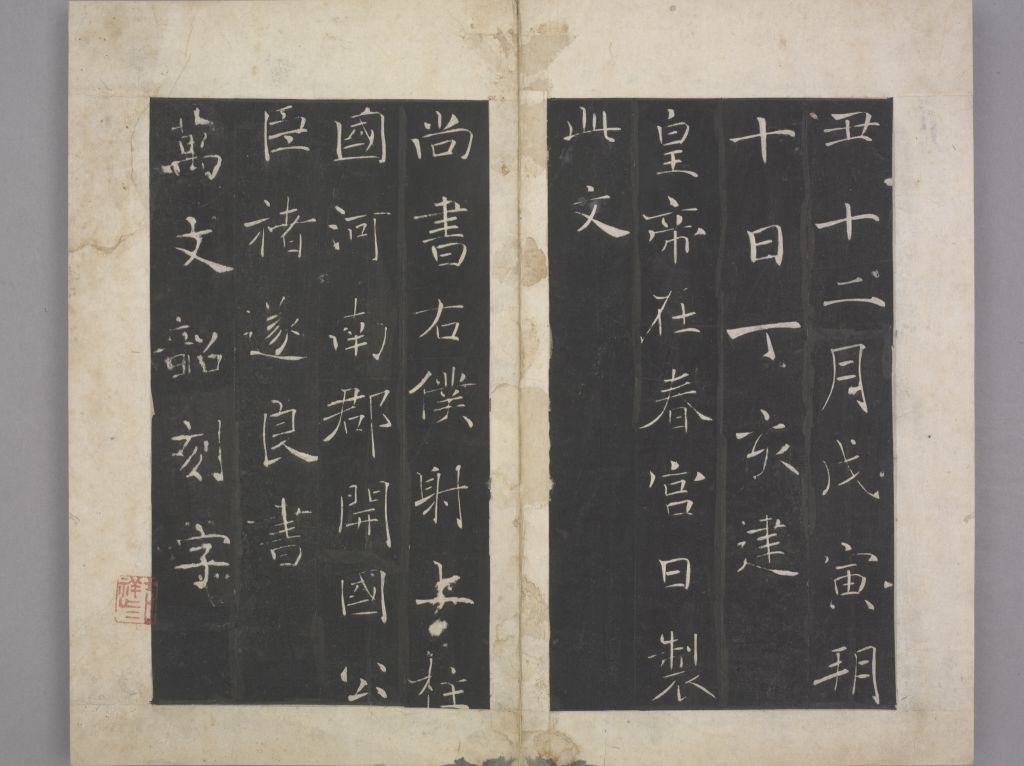 丑十二月戊寅玥
十日丁亥建
皇帝在春宫日製
此文
尚書右僕射上柱
國河南郡開國公
臣褚遂良書
萬文韶刻字